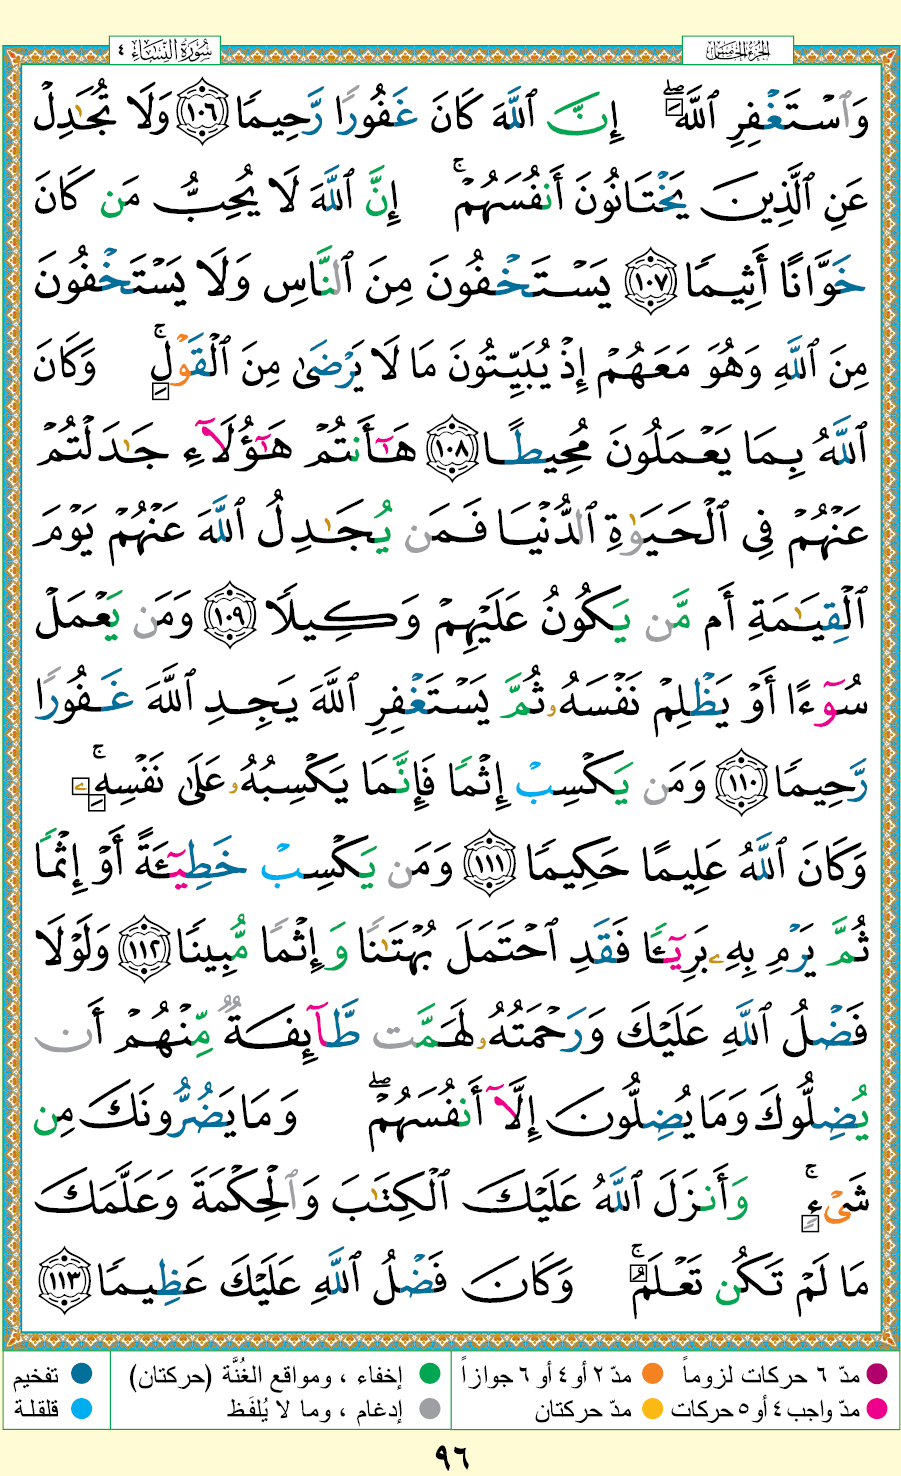 الجزء الخامس
سُورَةُ النِّسَاءِ ٤
وَٱسْتَغْفِرِ ٱللَّهَ ۖ إِنَّ ٱللَّهَ كَانَ غَفُورًا رَّحِيمًا ١٠٦ وَلَا تُجَـٰدِلْ
عَنِ ٱلَّذِينَ يَخْتَانُونَ أَنفُسَهُمْ ۚ إِنَّ ٱللَّهَ لَا يُحِبُّ مَن كَانَ
خَوَّانًا أَثِيمًا ١٠٧ يَسْتَخْفُونَ مِنَ ٱلنَّاسِ وَلَا يَسْتَخْفُونَ
مِنَ ٱللَّهِ وَهُوَ مَعَهُمْ إِذْ يُبَيِّتُونَ مَا لَا يَرْضَىٰ مِنَ ٱلْقَوْلِ ۚ وَكَانَ
ٱللَّهُ بِمَا يَعْمَلُونَ مُحِيطًا ١٠٨ هَـٰٓأَنتُمْ هَـٰٓؤُلَآءِ جَـٰدَلْتُمْ
عَنْهُمْ فِى ٱلْحَيَوٰةِ ٱلدُّنْيَا فَمَن يُجَـٰدِلُ ٱللَّهَ عَنْهُمْ يَوْمَ
ٱلْقِيَـٰمَةِ أَم مَّن يَكُونُ عَلَيْهِمْ وَكِيلًا ١٠٩ وَمَن يَعْمَلْ
سُوٓءًا أَوْ يَظْلِمْ نَفْسَهُۥ ثُمَّ يَسْتَغْفِرِ ٱللَّهَ يَجِدِ ٱللَّهَ غَفُورًا
رَّحِيمًا ١١٠ وَمَن يَكْسِبْ إِثْمًا فَإِنَّمَا يَكْسِبُهُۥ عَلَىٰ نَفْسِهِۦ ۚ
وَكَانَ ٱللَّهُ عَلِيمًا حَكِيمًا ١١١ وَمَن يَكْسِبْ خَطِيٓـَٔةً أَوْ إِثْمًا
ثُمَّ يَرْمِ بِهِۦ بَرِيٓـًٔا فَقَدِ ٱحْتَمَلَ بُهْتَـٰنًا وَإِثْمًا مُّبِينًا ١١٢ وَلَوْلَا
فَضْلُ ٱللَّهِ عَلَيْكَ وَرَحْمَتُهُۥ لَهَمَّت طَّآئِفَةٌ مِّنْهُمْ أَن
يُضِلُّوكَ وَمَا يُضِلُّونَ إِلَّآ أَنفُسَهُمْ ۖ وَمَا يَضُرُّونَكَ مِن
شَىْءٍ ۚ وَأَنزَلَ ٱللَّهُ عَلَيْكَ ٱلْكِتَـٰبَ وَٱلْحِكْمَةَ وَعَلَّمَكَ
مَا لَمْ تَكُن تَعْلَمُ ۚ وَكَانَ فَضْلُ ٱللَّهِ عَلَيْكَ عَظِيمًا ١١٣
مدّ ٦ حركات لزوماً مدّ ٢ أو ٤ أو ٦ جوازاً إخفاء ، ومواقع الغُنَّة (حركتان) تفخيم
مدّ واجب ٤ أو ٥ حركات مدّ حركتان إدغام ، وما لا يُلفَظ قلقلة
٩٦